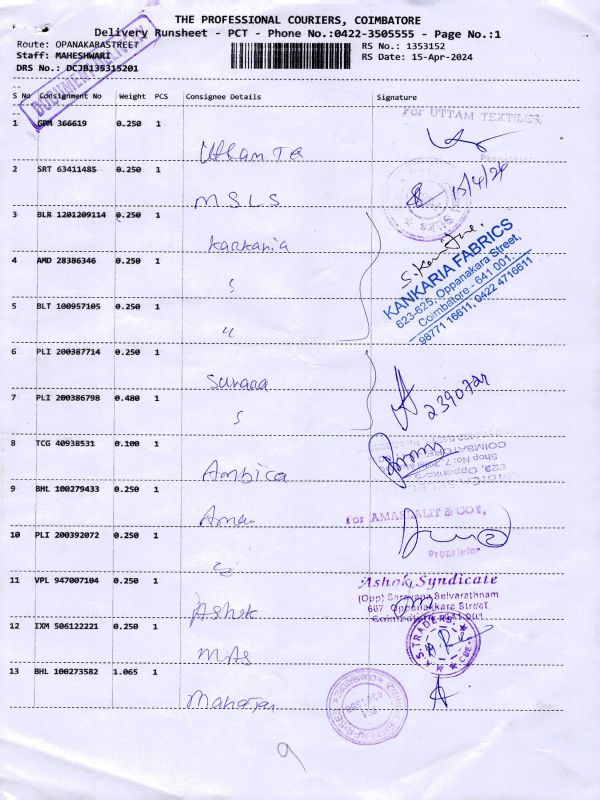 THE PROFESSIONAL COURIERS, COIMBATORE
Delivery Runsheet - PCT - Phone No.:0422-3505555 - Page No.:1
Route: OPANAKARASTREET RS No.: 1353152
Staff: MAHESHWARI RS Date: 15-Apr-2024
DRS No.: DCJB135315201
S No Consignment No Weight PCS Consignee Details Signature
For UTTAM TEXTILES,
1 GPM 366619 0.250 1
Uttam Te
2 SRT 63411485 0.250 1
15/4/24
M S L S
3 BLR 1201209114 0.250 1
Kankaria
4 AMD 28386346 0.250 1
KANKARIA FABRICS
623-625, Oppanakara Street,
Coimbatore - 641 001.
98771 16611, 0422 4716611
5 BLT 100957105 0.250 1
6 PLI 200387714 0.250 1
Surana
7 PLI 200386798 0.480 1
8 TCG 40938531 0.100 1
Ambica
9 BHL 100279433 0.250 1
10 PLI 200392072 0.250 1
Proprietor
11 VPL 947007104 0.250 1
Ashok Syndicate
(Opp) Saravana Selvarathnam
667, Oppanakkara Street,
Ashok
12 IXM 506122221 0.250 1
M.A.S. TRADERS
CBE-1
MAS
13 BHL 100273582 1.065 1
9